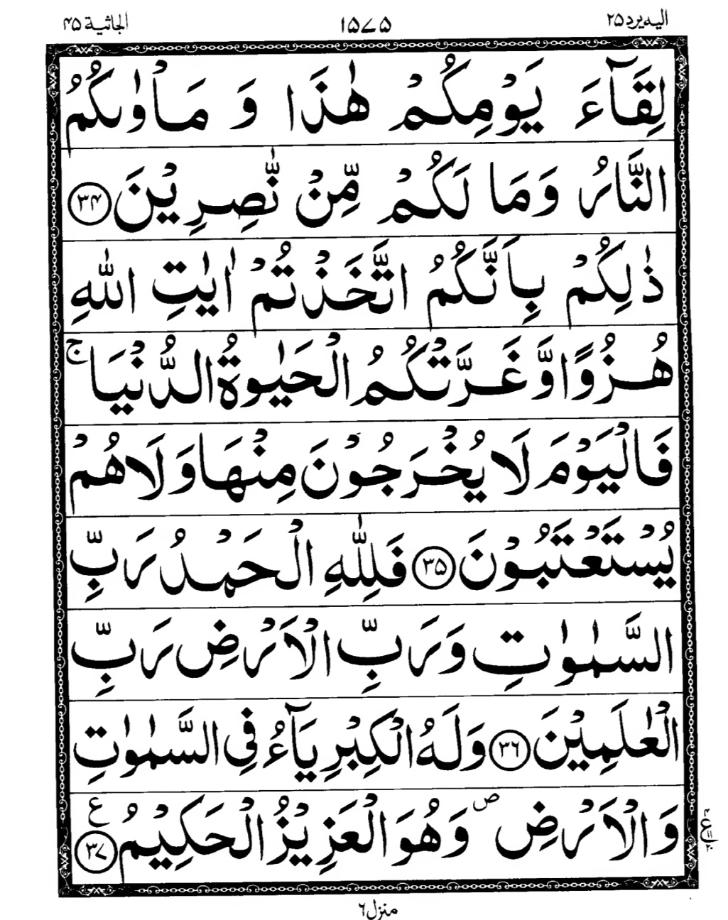 اليه يرد ٢٥ ١٥٧٥ الجاثية ٤٥
لِقَآءَ يَوْمِكُمْ هٰذَا وَ مَاْوٰىكُمُ
النَّارُ وَمَا لَكُمْ مِّنْ نّٰصِرِيْنَ ﴿٣٤﴾
ذٰلِكُمْ بِاَنَّكُمُ اتَّخَذْتُمْ اٰيٰتِ اللّٰهِ
هُزُوًا وَّ غَرَّتْكُمُ الْحَيٰوةُ الدُّنْيَا ۚ
فَالْيَوْمَ لَا يُخْرَجُوْنَ مِنْهَا وَلَا هُمْ
يُسْتَعْتَبُوْنَ ﴿٣٥﴾ فَلِلّٰهِ الْحَمْدُ رَبِّ
السَّمٰوٰتِ وَ رَبِّ الْاَرْضِ رَبِّ
الْعٰلَمِيْنَ ﴿٣٦﴾ وَلَهُ الْكِبْرِيَآءُ فِى السَّمٰوٰتِ
وَالْاَرْضِ ۪ وَهُوَ الْعَزِيْزُ الْحَكِيْمُ ﴿٣٧﴾ ع
منزل ٦